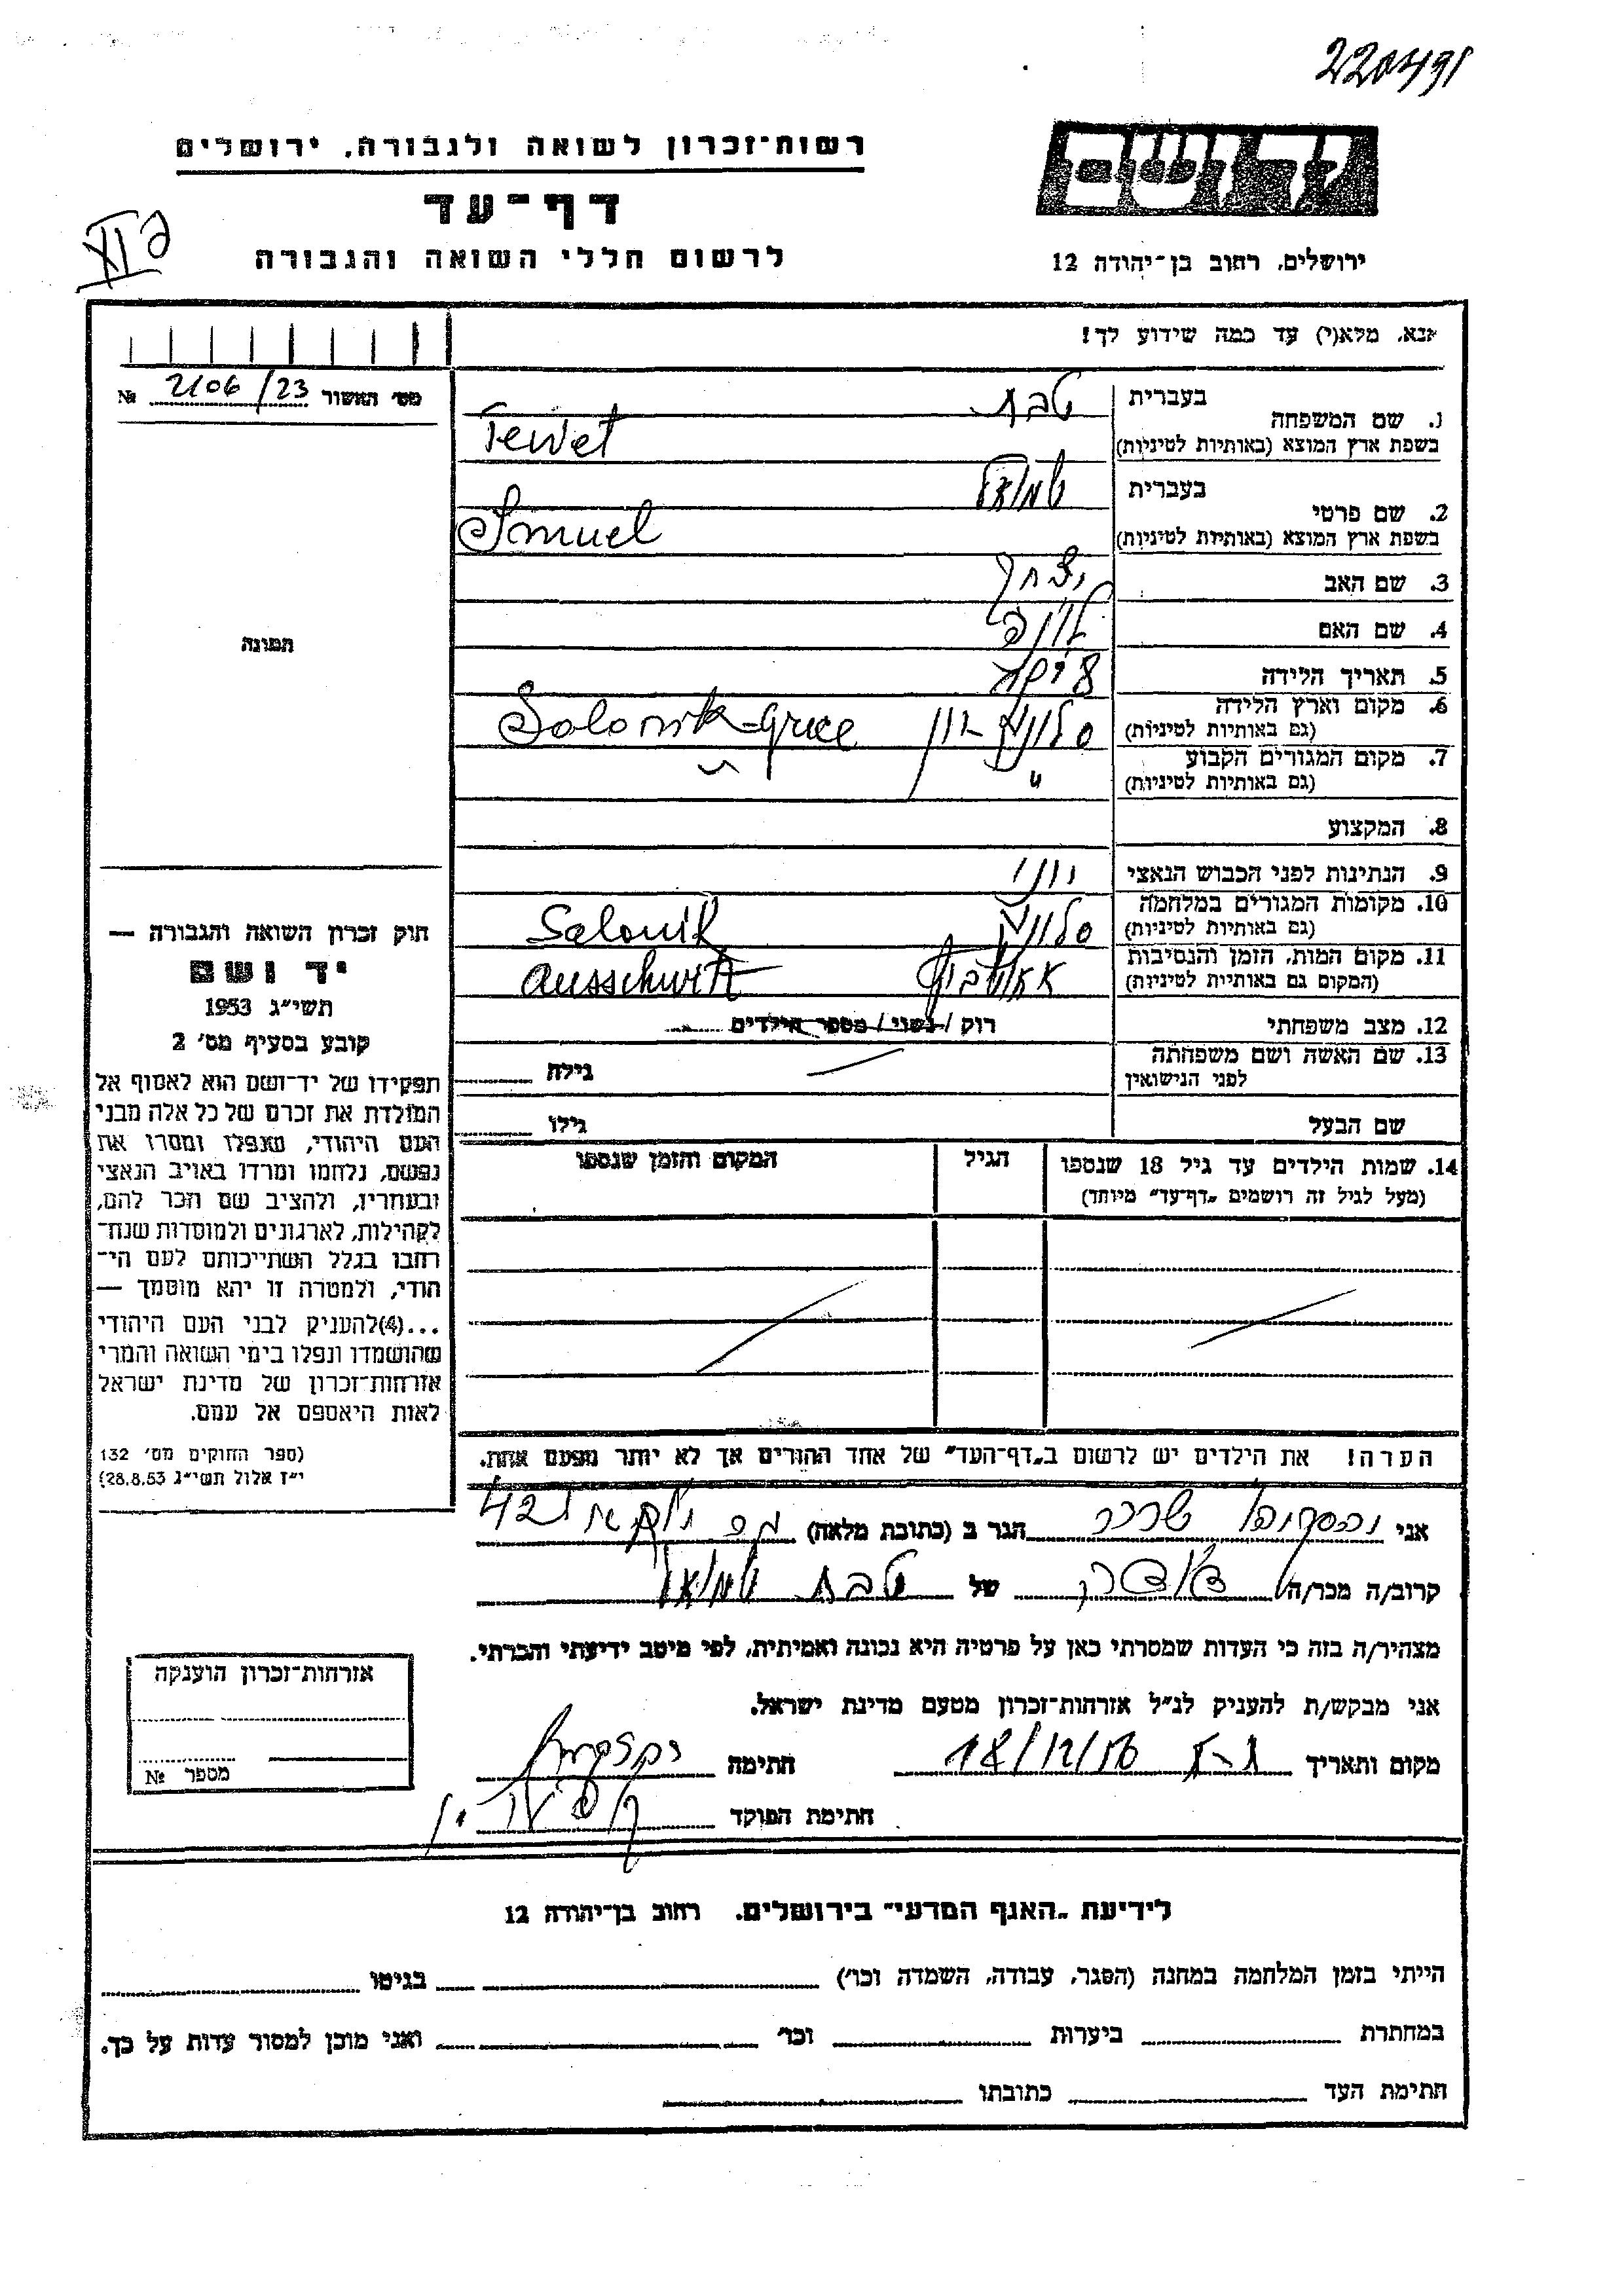 רשות־זכרון לשואה ולגבורה, ירושלים
דף־עד
לרשום חללי השואה והגבורה
ירושלים, רחוב בן־יהודה 12
אנא, מלא(י) עד כמה שידוע לך!
מס׳ האשור 2106/23 №
1. שם המשפחה
בעברית טבת
בשפת ארץ המוצא (באותיות לטיניות) Tewet
2. שם פרטי
בעברית שמואל
בשפת ארץ המוצא (באותיות לטיניות) Smuel
3. שם האב יצחק
4. שם האם
5. תאריך הלידה
6. מקום וארץ הלידה
(גם באותיות לטיניות) סלוניק יון Salonik-Grece
7. מקום המגורים הקבוע
(גם באותיות לטיניות) "
8. המקצוע
9. הנתינות לפני הכבוש הנאצי יווני
10. מקומות המגורים במלחמה
(גם באותיות לטיניות) סלוניק Salonik
11. מקום המות, הזמן והנסיבות
(המקום גם באותיות לטיניות) אאושביץ Ausschwitz
12. מצב משפחתי רוק / נשוי / מספר הילדים
13. שם האשה ושם משפחתה
לפני הנישואין גילה
שם הבעל גילו
14. שמות הילדים עד גיל 18 שנספו הגיל המקום והזמן שנספו
(מעל לגיל זה רושמים „דף־עד״ מיוחד)
הערה! את הילדים יש לרשום ב„דף־העד״ של אחד ההורים אך לא יותר מפעם אחת.
תמונה
חוק זכרון השואה והגבורה —
יד ושם
תשי״ג 1953
קובע בסעיף מס׳ 2
תפקידו של יד־ושם הוא לאסוף אל
המולדת את זכרם של כל אלה מבני
העם היהודי, שנפלו ומסרו את
נפשם, נלחמו ומרדו באויב הנאצי
ובעוזריו, ולהציב שם וזכר להם,
לקהילות, לארגונים ולמוסדות שנח־
רבו בגלל השתייכותם לעם הי־
הודי, ולמטרה זו יהא מוסמך —
...(4)להעניק לבני העם היהודי
שהושמדו ונפלו בימי השואה והמרי
אזרחות־זכרון של מדינת ישראל
לאות היאספם אל עמם.
(ספר החוקים מס׳ 132
י״ז אלול תשי״ג 28.8.53)
אני הגר ב (כתובת מלאה) 42
קרוב/ה מכר/ה של טבת שמואל
מצהיר/ה בזה כי העדות שמסרתי כאן על פרטיה היא נכונה ואמיתית, לפי מיטב ידיעתי והכרתי.
אני מבקש/ת להעניק לנ״ל אזרחות־זכרון מטעם מדינת ישראל.
מקום ותאריך 18/12/56 חתימה
חתימת הפוקד
אזרחות־זכרון הוענקה
מספר №
לידיעת „האגף המדעי״ בירושלים, רחוב בן־יהודה 12
הייתי בזמן המלחמה במחנה (הסגר, עבודה, השמדה וכו׳) בגיטו
במחתרת ביערות וכו׳ ואני מוכן למסור עדות על כך.
חתימת העד כתובתו